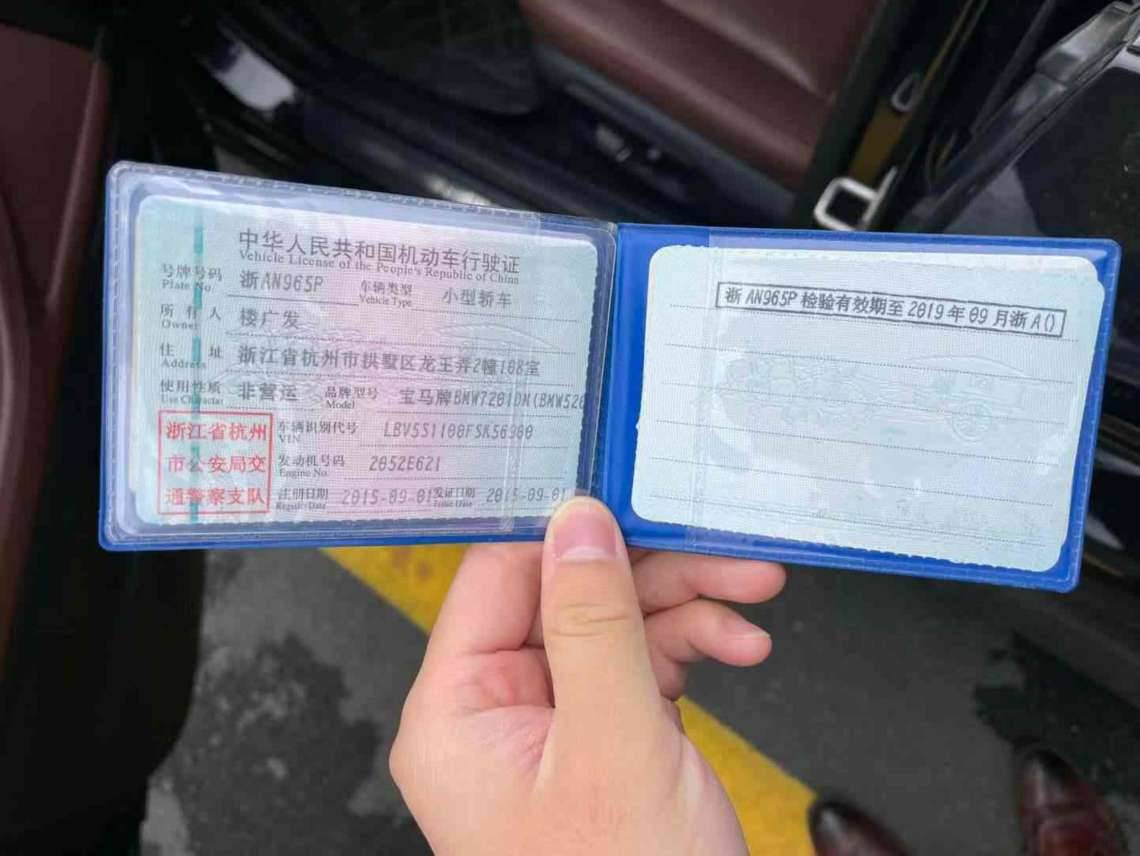 中华人民共和国机动车行驶证
Vehicle License of the People's Republic of China
号牌号码 浙AN965P 车辆类型 小型轿车
Plate No. Vehicle Type
所有人 楼广发
Owner
住址 浙江省杭州市拱墅区龙王弄2幢108室
Address
使用性质 非营运 品牌型号 宝马牌BMW7201DM(BMW520
Use Character Model
浙江省杭州
市公安局交
通警察支队
车辆识别代号 LBV5S1100FSK56900
VIN
发动机号码 2052E621
Engine No.
注册日期 2015-09-01 发证日期 2015-09-01
Register Date Issue Date
浙AN965P检验有效期至2019年09月浙A()